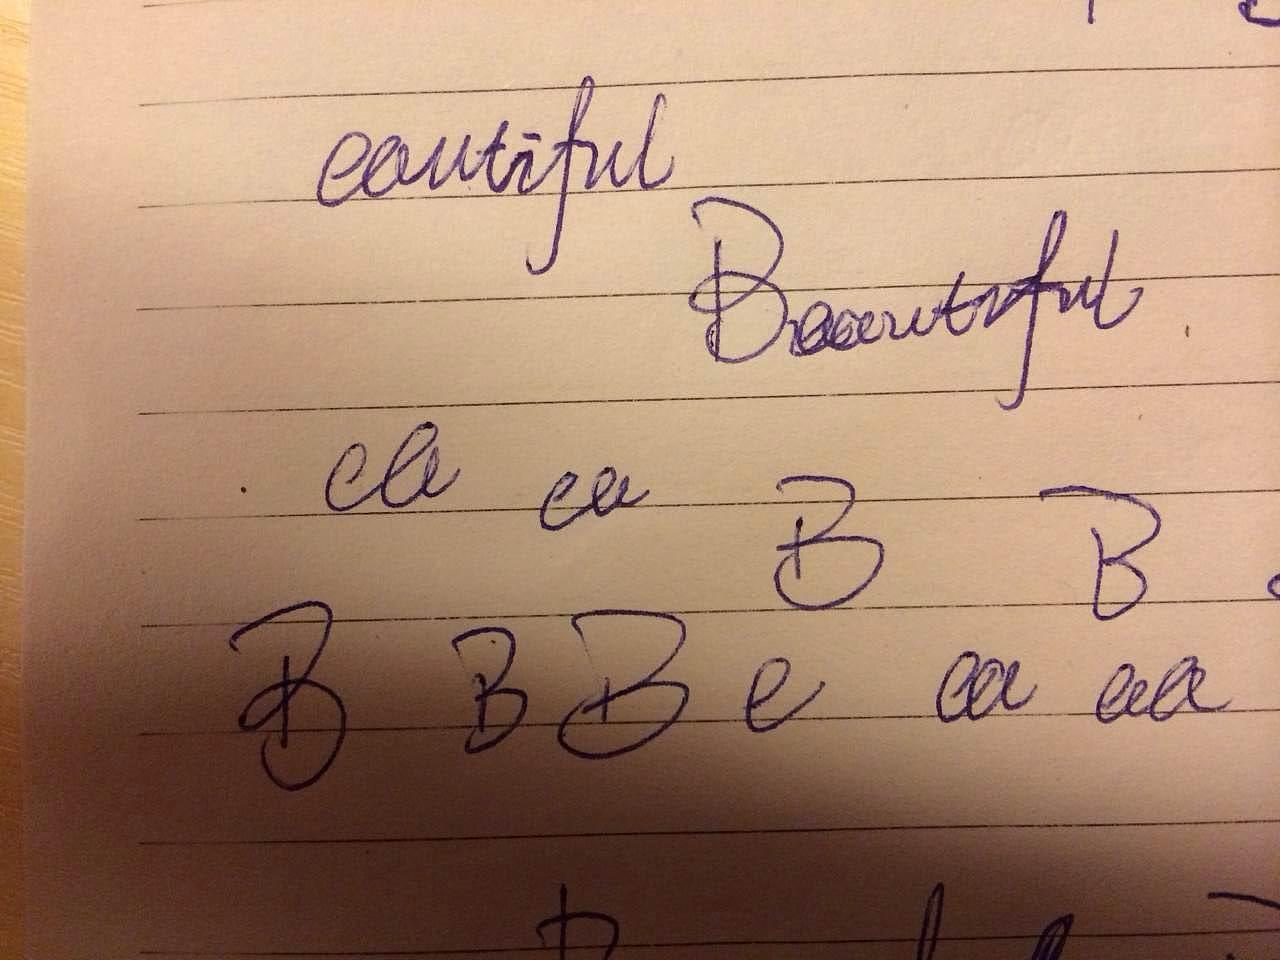 eautiful
Beautiful
ea ea B B
B B B e ea ea